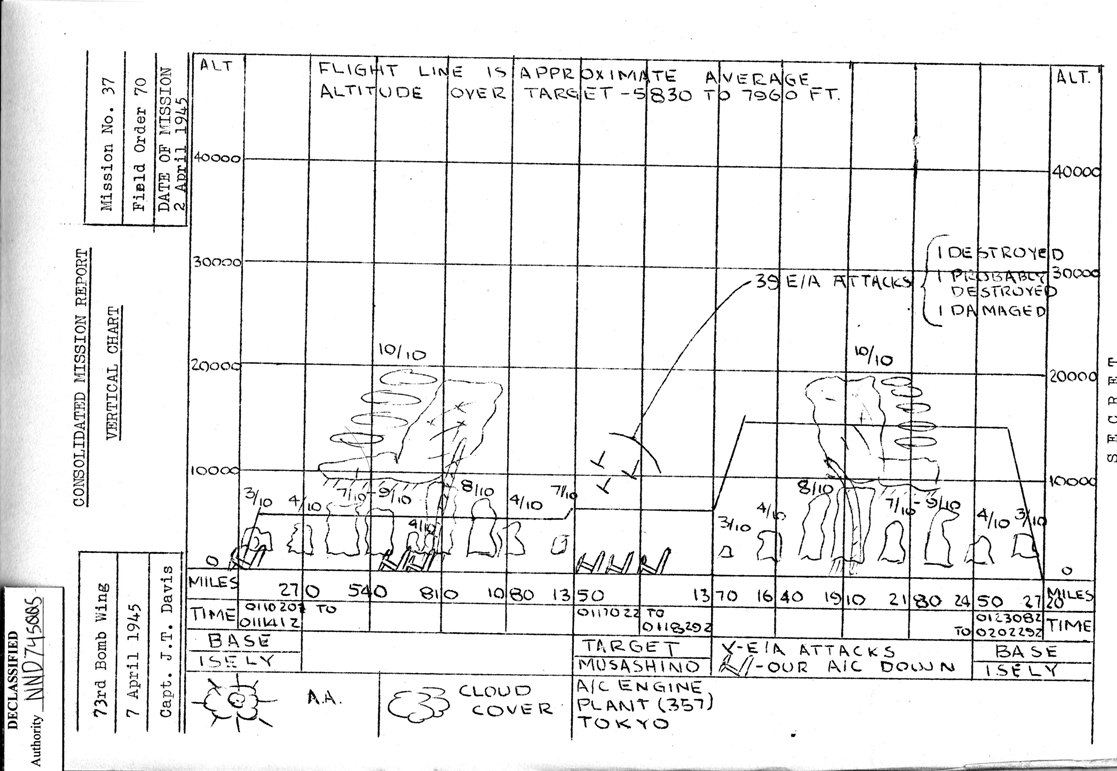 Mission No. 37
Field Order 70
DATE OF MISSION
2 April 1945
CONSOLIDATED MISSION REPORT
VERTICAL CHART
73rd Bomb Wing
7 April 1945
Capt. J.T. Davis
DECLASSIFIED
Authority NND745005
SECRET
ALT
FLIGHT LINE IS APPROXIMATE AVERAGE
ALTITUDE OVER TARGET - 5830 TO 7960 FT.
ALT.
40000
40000
1 DESTROYED
30000
39 E/A ATTACKS
1 PROBABLY
30000
DESTROYED
1 DAMAGED
10/10
10/10
20000
20000
10000
10000
3/10
4/10
7/10-9/10
4/10
8/10
4/10
7/10
3/10
4/10
8/10
7/10-9/10
4/10
3/10
0
0
MILES
270 540 810 1080 1350 1370 1640 1910 2180 2450 2720
MILES
TIME
011020Z TO
011141Z
011702Z TO
011829Z
012308Z
TO 020229Z
TIME
BASE
ISELY
TARGET
MUSASHINO
A/C ENGINE
PLANT (357)
TOKYO
Y-E/A ATTACKS
-OUR A/C DOWN
BASE
ISELY
A.A.
CLOUD
COVER